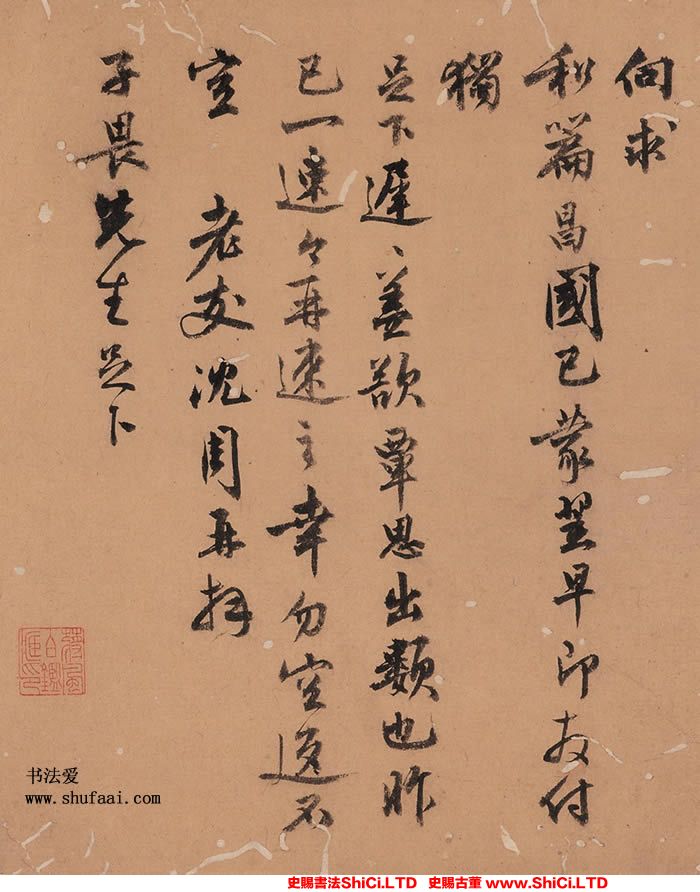 向求
和篇昌國已蒙翌早即敎付
獨
足下遲〻蓋欲覃思出類也昨
已一速今再速之幸勿空返不
宣 老友沈周再拜
子畏先生足下
书法爱
www.shufaai.com
史賜書法ShiCi.LTD 史賜古董 www.ShiCi.LTD